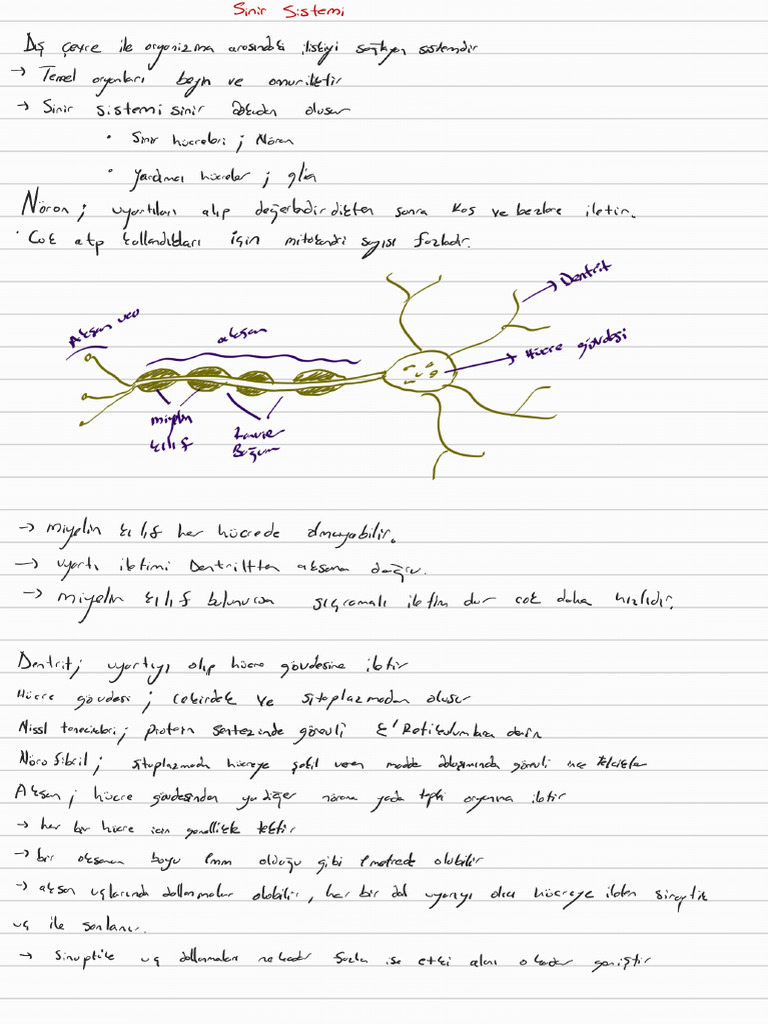 Sinir Sistemi
Dış çevre ile organizma arasındaki ilişkiyi sağlayan sistemdir
→ Temel organları beyin ve omuriliktir
→ Sinir sistemi sinir dokudan oluşur
• Sinir hücreleri ; Nöron
• Yardımcı hücreler ; glia
Nöron ; uyartıları alıp değerlendirdikten sonra kas ve bezlere iletir.
• Cok atp kullandıkları için mitokondri sayısı fazladır.
Dentrit
Akson ucu
akson
Hücre gövdesi
miyelin kılıf
Ranvier Boğum
→ miyelin kılıf her hücrede olmayabilir.
→ uyartı iletimi Dentritten aksona doğru.
→ miyelin kılıf bulunursa sıçramalı iletim olur cok daha hızlıdır.
Dentrit ; uyartıyı alıp hücre gövdesine iletir
Hücre gövdesi ; cekirdek ve sitoplazmadan oluşur
Nissl tanecikleri ; protein sentezinde görevli E' Retikulumlara denir
Nörofibril ; sitoplazmada hücreye şekil veren madde dolaşımında görevli ince telcikler
Akson ; hücre gövdesinden ya diğer nörona yada tepki organına iletir
→ her bir hücre icin genellikle tektir
→ bir aksonun boyu 1mm olduğu gibi 1 metrede olabilir
→ akson uçlarında dallanmalar olabilir, her bir dal uyarıyı alıcı hücreye ileten sinaptik
uç ile sonlanır.
→ Sinaptik uç dallanmaları ne kadar fazla ise etki alanı o kadar geniştir